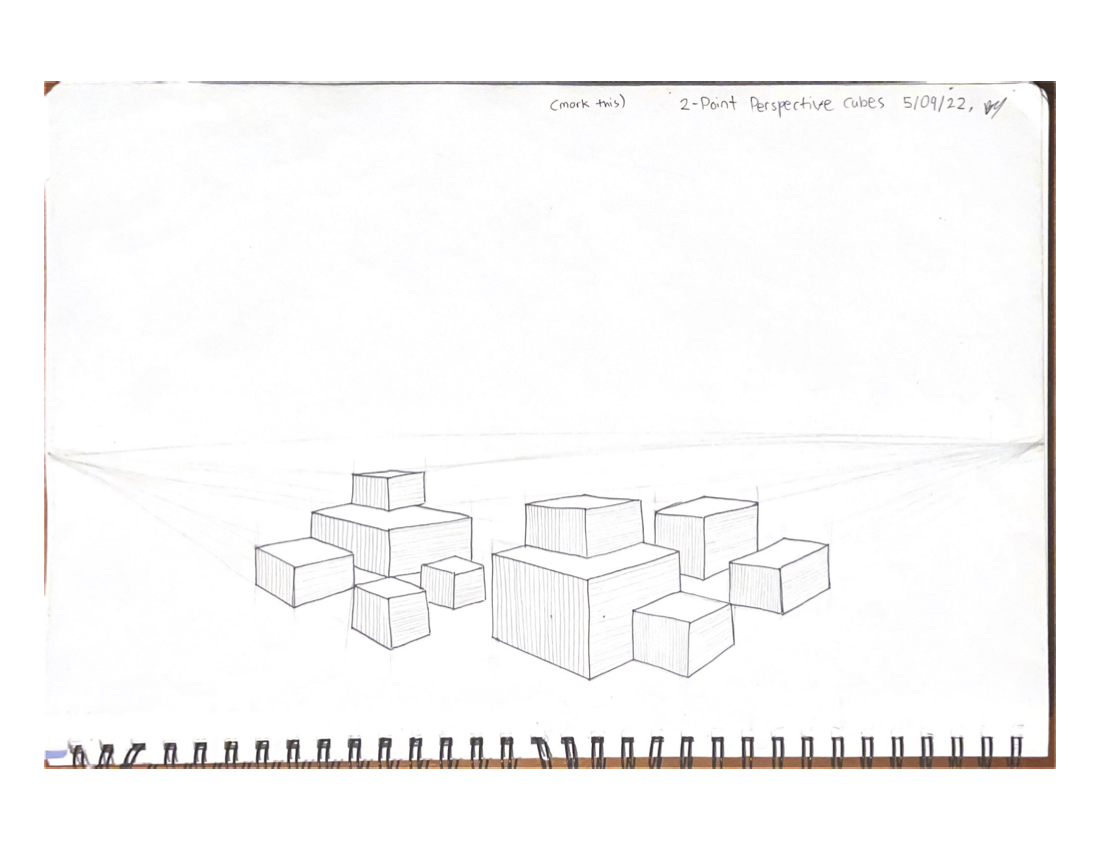 (mark this) 2-Point Perspective cubes 5/09/22,